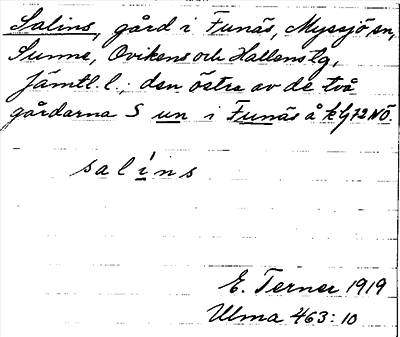 Salins, gård i Funäs, Myssjö sn,
Sunne, Ovikens och Hallens tg,
Jämtl. l.; den östra av de två
gårdarna S un i Funäs å kbl 72 NÖ.
salíns
E. Terner 1919
Ulma 463:10